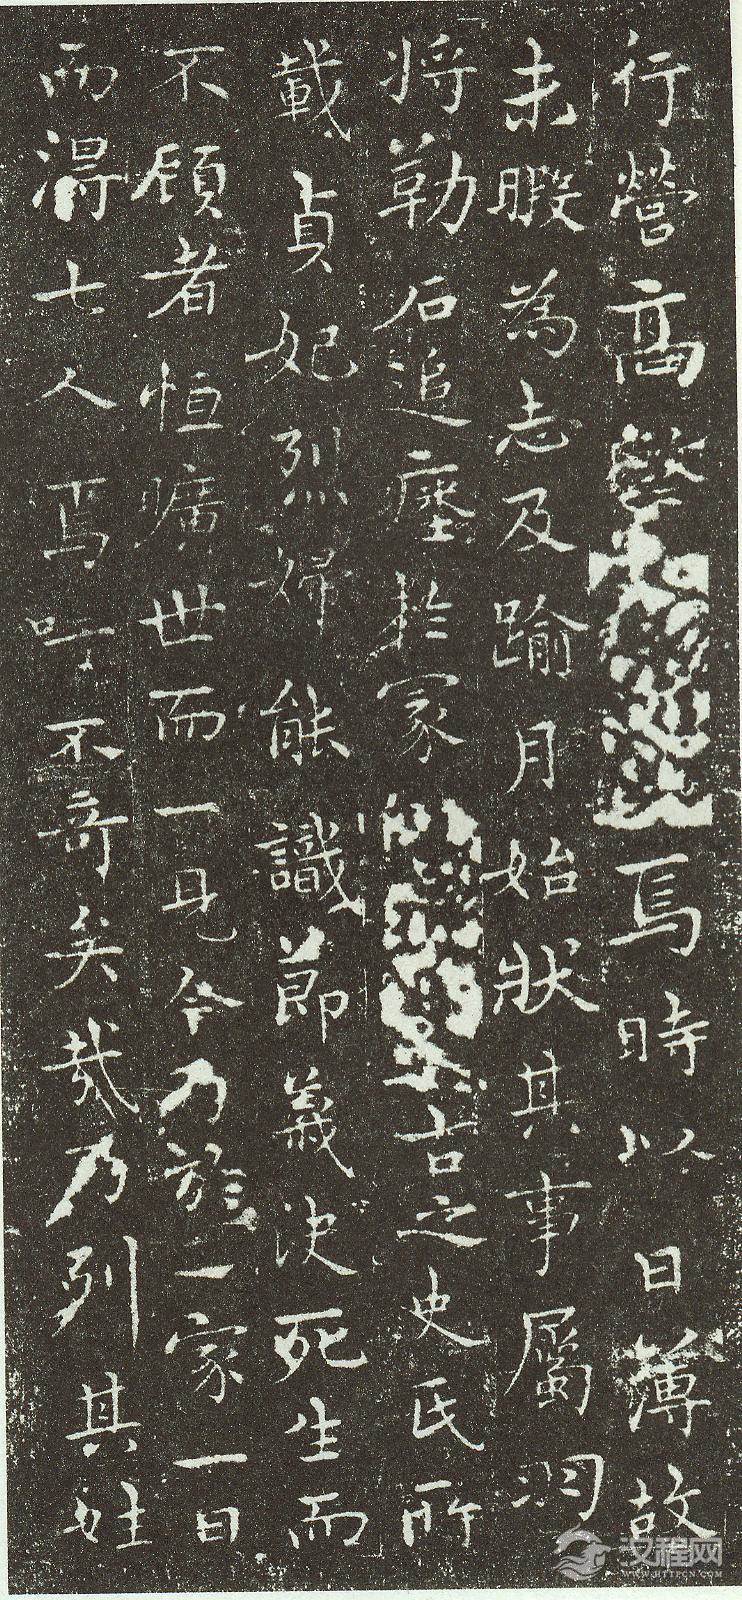 行營高焉時以日薄故
未暇為志及踰月始狀其事屬羽
将勒石追瘞於冢昔之史氏所
載貞妃烈婦能識節義决死生而
不顧者恒曠世而一見今乃於一家一日
而得七人焉吁不奇矣哉乃列其姓
汉程网
WWW.HTTPCN.COM